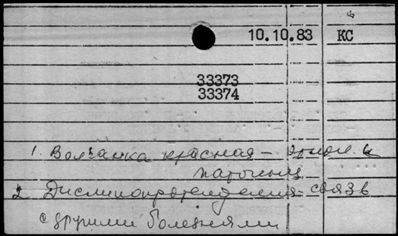 10.10.83 КС
33373
33374
1. Волчанка красная - этиол. и
патогенез
2. Диспипопротеидемия - связь
с другими болезнями